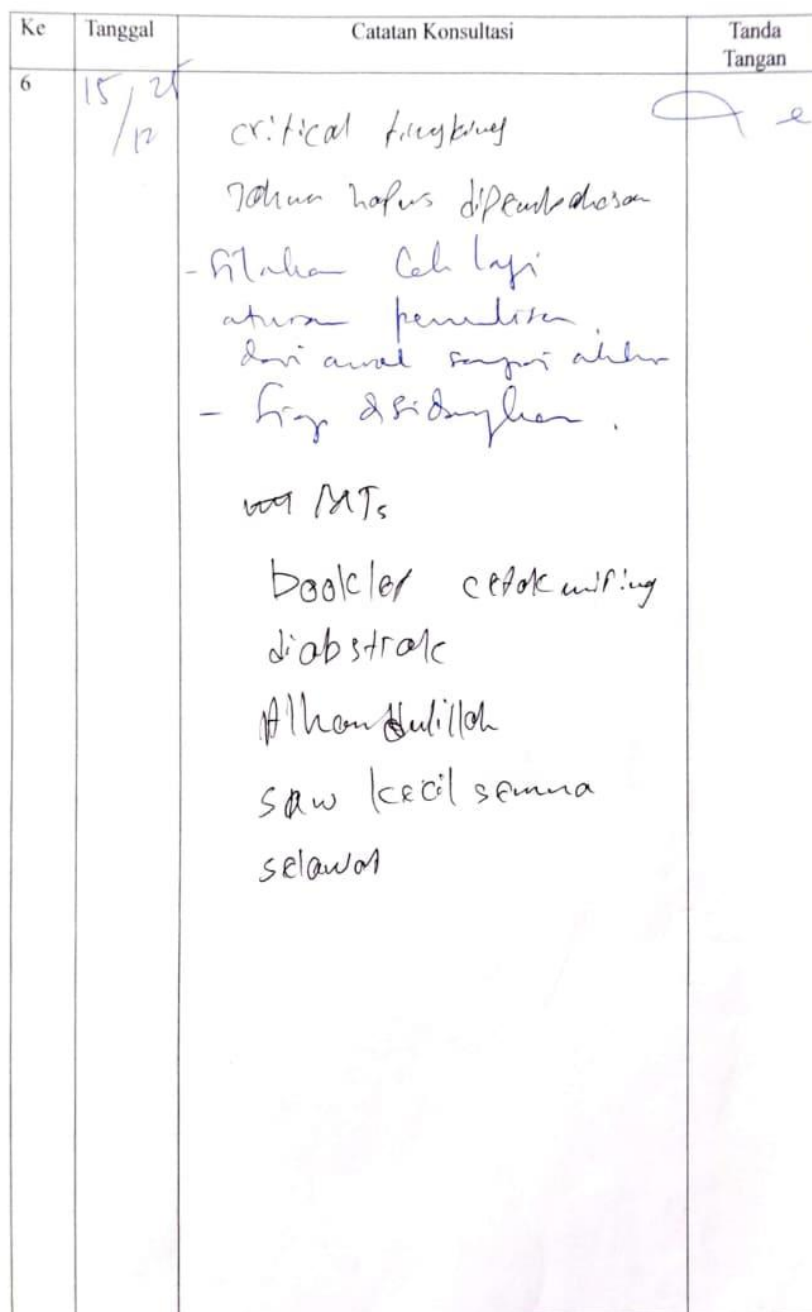 Ke Tanggal Catatan Konsultasi Tanda Tangan
6 15/12
critical tingking
Tahun hapus dipembahasan
- Silahkan Cek lagi
aturan penulisan
dari awal sampai akhir
- Siap disidangkan.
MTs
booklet cetak miring
diabstrak
Alhamdulillah
saw kecil semua
selawat